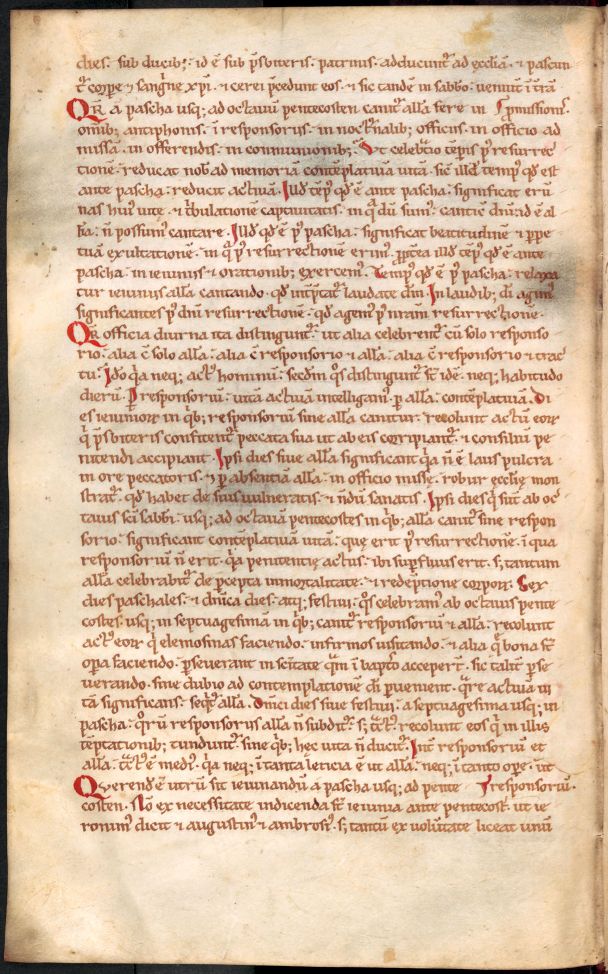 dies. sub ducib;. id ē sub p̄sbiteris. patrinis. adducunt᷑ ad ęcclīa. ⁊ pascun
t᷑ corpe ⁊ sanguīne xp̄i. ⁊ cerei p̄cedunt eos. ⁊ sic tandē in sabbo.
QR̄ a pascha usq; ad octauā pentecosten canit᷑ all̄a fere in
omīb; antiphonis. ī responsoriis. in noct᷑nalib; officiis. in officio ad
missā. in offerendis. in communionib;. Vt celebr̄tio tēp̄is p᷒ resurrec
tionē. reducat nob̄ ad memoriā contēplatiuā uitā. sic illd̄ temp᷒ qd̄ est
ante pascha. reducit actiuā. Illd̄ tēp᷒ qd̄ ē ante pascha. significat erū
nas hui᷒ uitę. ⁊ t᷑bulationē captiuitatis. in q̄ dū sum᷒. canticū
n̄ possum᷒ cantare. Illd̄ qd̄ ē p᷒ pascha. significat beatitudinē ⁊ ppe
tuā exultationē. in q̄ p᷒ resurrectionē erim᷒. ꝓptea illd̄ tēp᷒ qd̄ ē ante
pascha. in ieiuniis ⁊ orationib; exercem᷒. Temp᷒ qd̄ ē p᷒ pascha. relaxa
tur ieiuniis all̄a cantando. qd̄ int̄p̄tat᷑ laudate dn̄m. In laudib; dī agim᷒
significantes p᷒ dn̄i resurrectionē. qd̄ agem᷒ p᷒ nr̄am resurrectionē.
QR̄ officia diurna ita distingunt᷑. ut alia celebrent᷑ cū solo responso
rio. alia cū solo all̄a. alia cū responsorio ⁊ all̄a. alia cū responsorio ⁊ trac
tu. Ido q̄a neq; act᷒ hominū. secd̄m q̄s distingunt᷑ st̄ idē. neq; habitudo
dierū. Ꝑ responsoriū. uitā actiuā intelligam᷒. p all̄a. contēplatiuā. Di
es ieiuniorꝝ in qb; responsoriū sine all̄a canitur. recolunt actū eorꝝ
q̄ p̄sbiteris confitent᷑ peccata sua ut ab eis corripiant᷑. ⁊ consiliū pe
nitendi accipiant. Ipsi dies siue all̄a significant q̄a n̄ ē laus pulcra
in ore peccatoris. ⁊ p absentiā all̄a. in officio missę. robur ęcclīę mon
strat᷑. qd̄ habet de suis uulneratis. ⁊ n̄dū sanatis. Ipsi dies q̄ sunt ab oc
tauis sc̄i sabbi. usq; ad octauā pentecostes in qb; all̄a canit᷑ sine respon
sorio. significant contēplatiuā uitā. quę erit p᷒ resurrectionē. ī qua
responsoriū n̄ erit. q̄a penitentię act᷒. ibi supfluus erit. s; tantum
all̄a celebrabit᷑ de pcepta inmortalitate. ⁊ redēptione corporꝝ. Sex
dies paschales. ⁊ dn̄ica dies. atq; festiui. q̄s celebram᷒ ab octauis pente
costes. usq; in septuagesima in qb; canit᷑ responsoriū ⁊ all̄a. recolunt
act᷒ eorꝝ q̄ elemosinas faciendo. infirmos uisitando. ⁊ alia q̄ bona st̄
opa faciendo. pseuerant in sc̄itate q̄m ī bapto acceper̄t. sic talit᷑ pse
uerando. sine dubio ad contemplationē dī pueniunt. q̄re actiuā ui
tā significans. seq̄t᷑ all̄a. Dn̄ici dies siue festiui. a septuagesima usq; in
pascha. q̄rū responsoriis all̄a n̄ subdit᷑. s; t̄ct᷒. recolunt eos q̄ in illis
tēptationib; tundunt᷑. sine qb; hec uita n̄ ducit᷑. Int̄ responsoriū et
all̄a. t̄ct᷒ ē medi᷒. q̄a neq; ī tanta leticia ē ut all̄a. neq; ī tanto ope. ut
Querendū ē utrū sit ieiunandū a pascha usq; ad pente responsoriū.
costen. N̄ ex necessitate indicenda st̄ ieiunia ante pentecost̄. ut ie
ronim᷒ dicit ⁊ augustin᷒ ⁊ ambrosi᷒. s; tantū ex uolūtate liceat unū